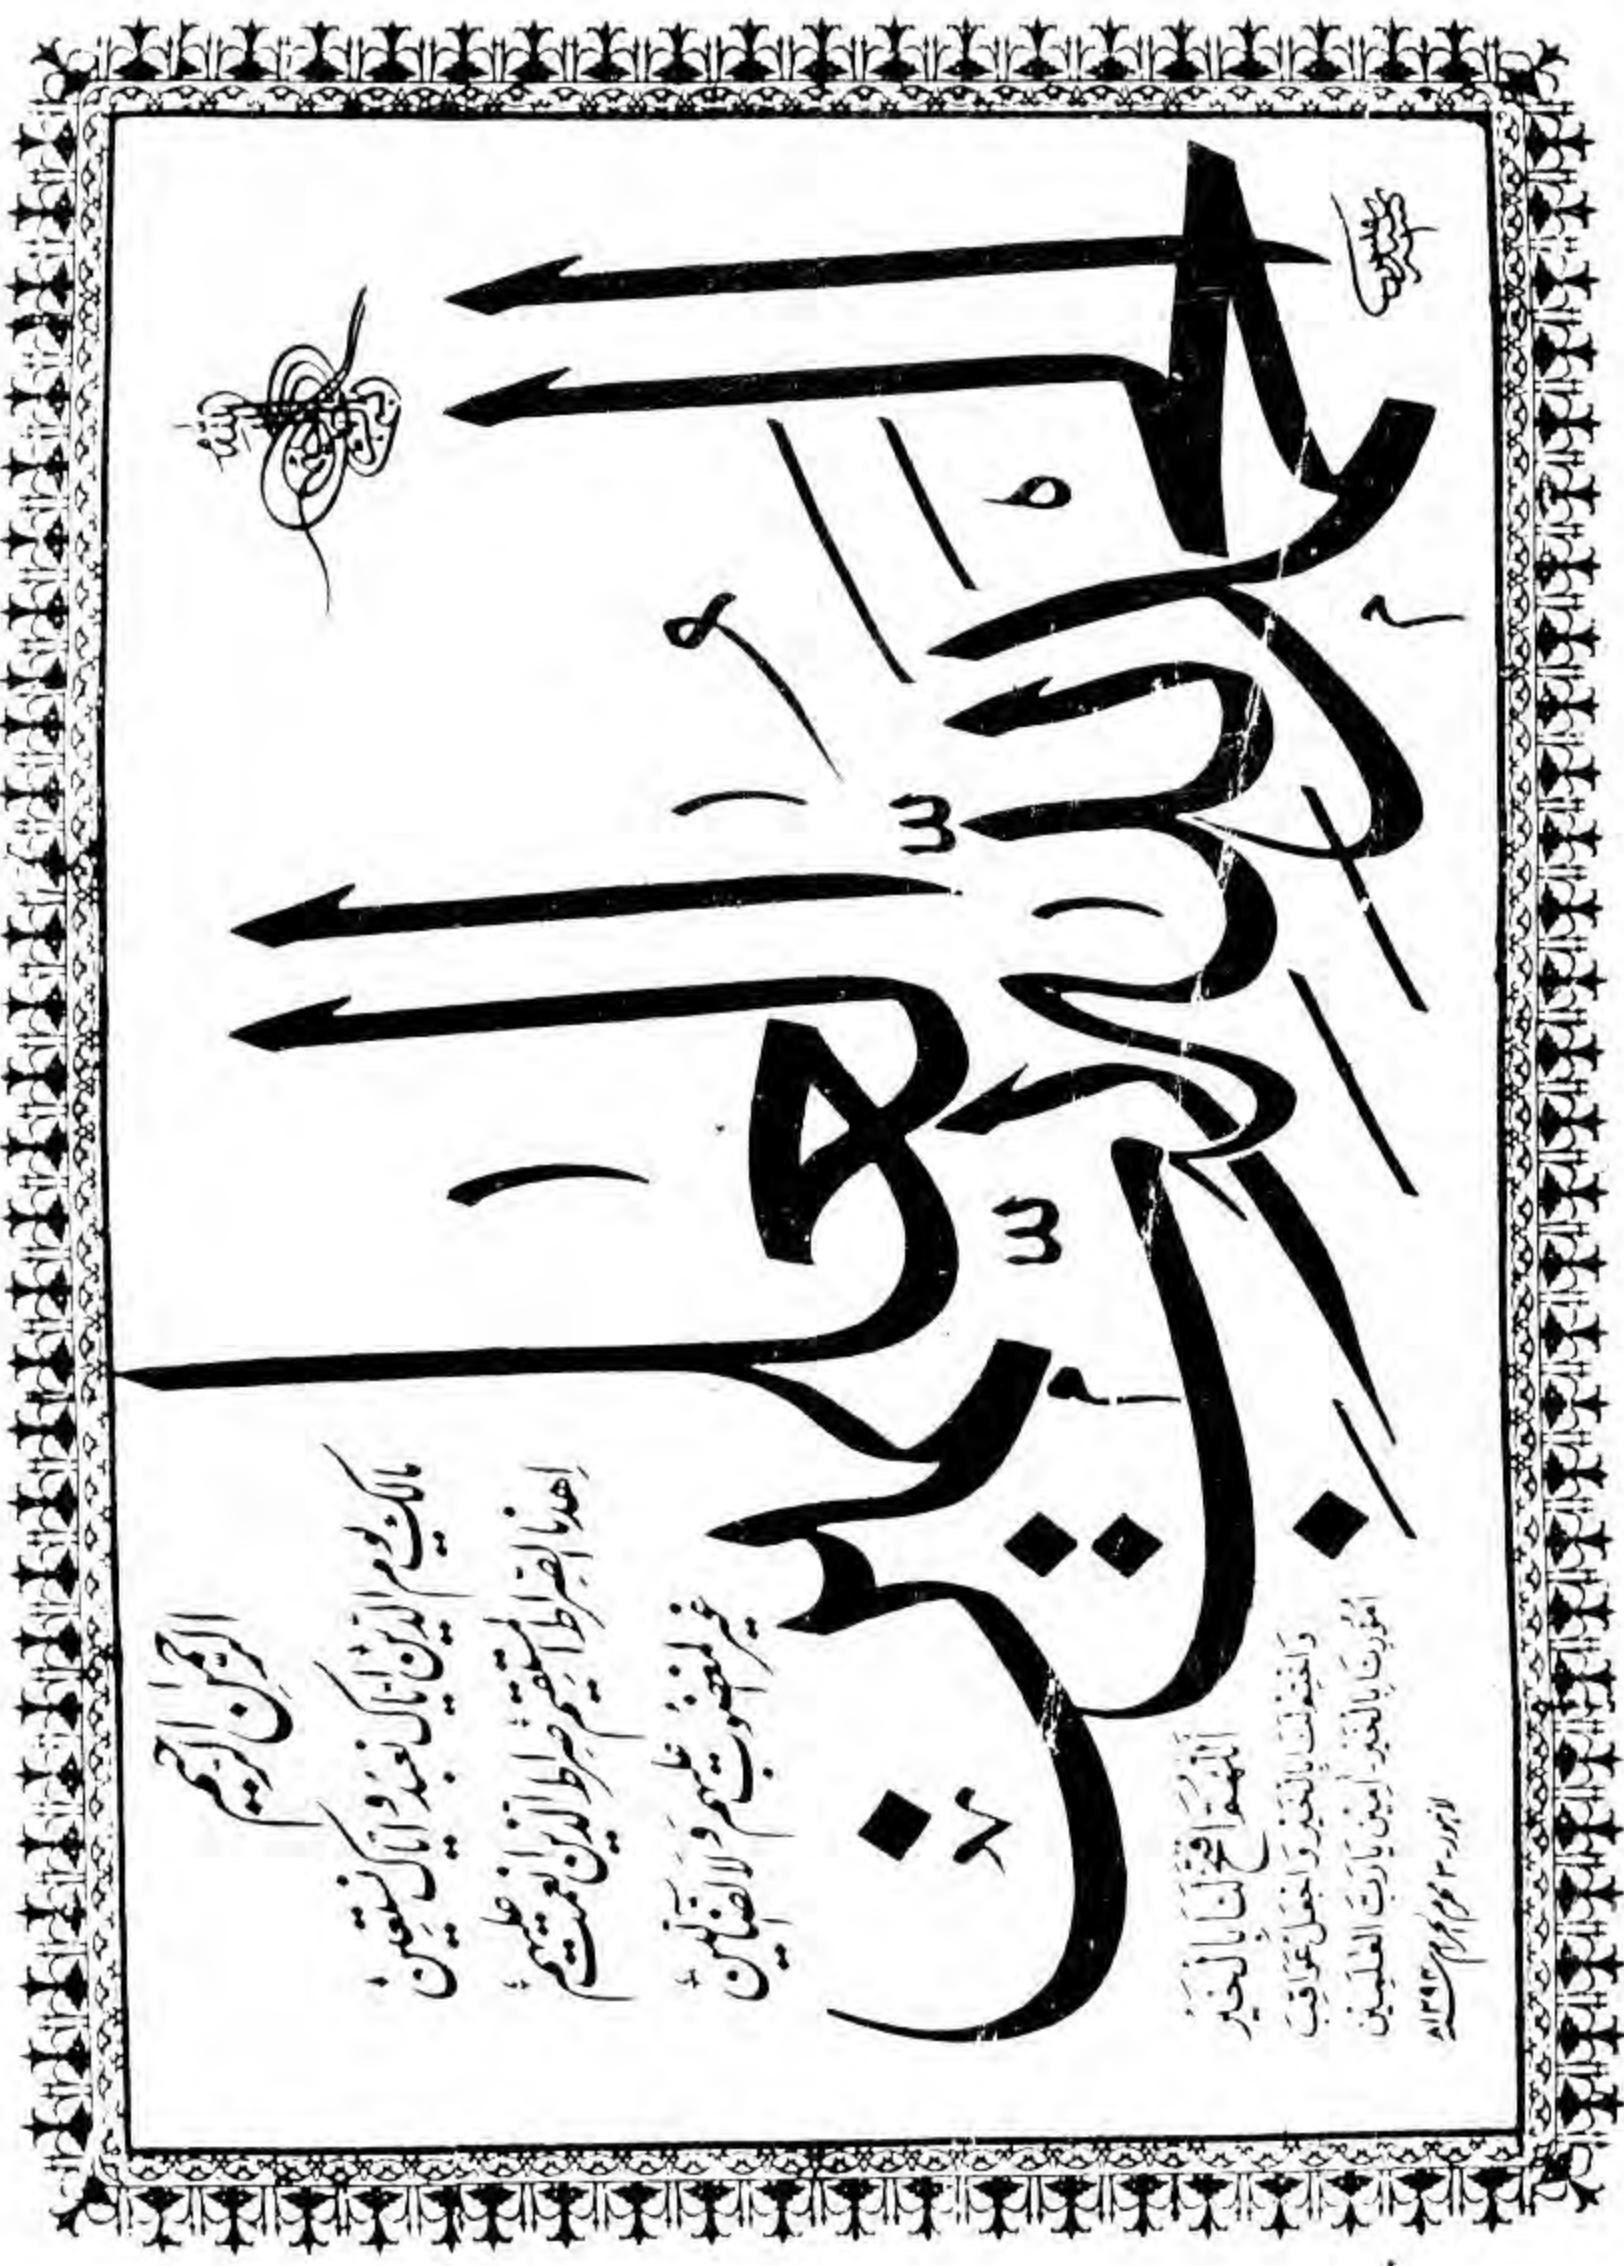 الْحَمْدُ لِلّٰهِ رَبِّ الْعٰلَمِيْنَ
الرَّحْمٰنِ الرَّحِيْمِ
مالك يوم الدين اياك نعبد و اياك نستعين
اِهدنا الصراط المستقيم صراط الذين انعمت عليهم
غير المغضوب عليهم وَلا الضآلين
اَللّٰهُمَّ افْتَحْ لَنَا بِالْخَيْرِ
وَاخْتِمْ لَنَا بِالْخَيْرِ وَاجْعَلْ عَوَاقِبَ
اُمُوْرِنَا بِالْخَيْرِ - اٰمِيْن يَا رَبَّ الْعٰلَمِيْن
لاہور - ۳ محرم الحرام ۱۳۹۳ھ